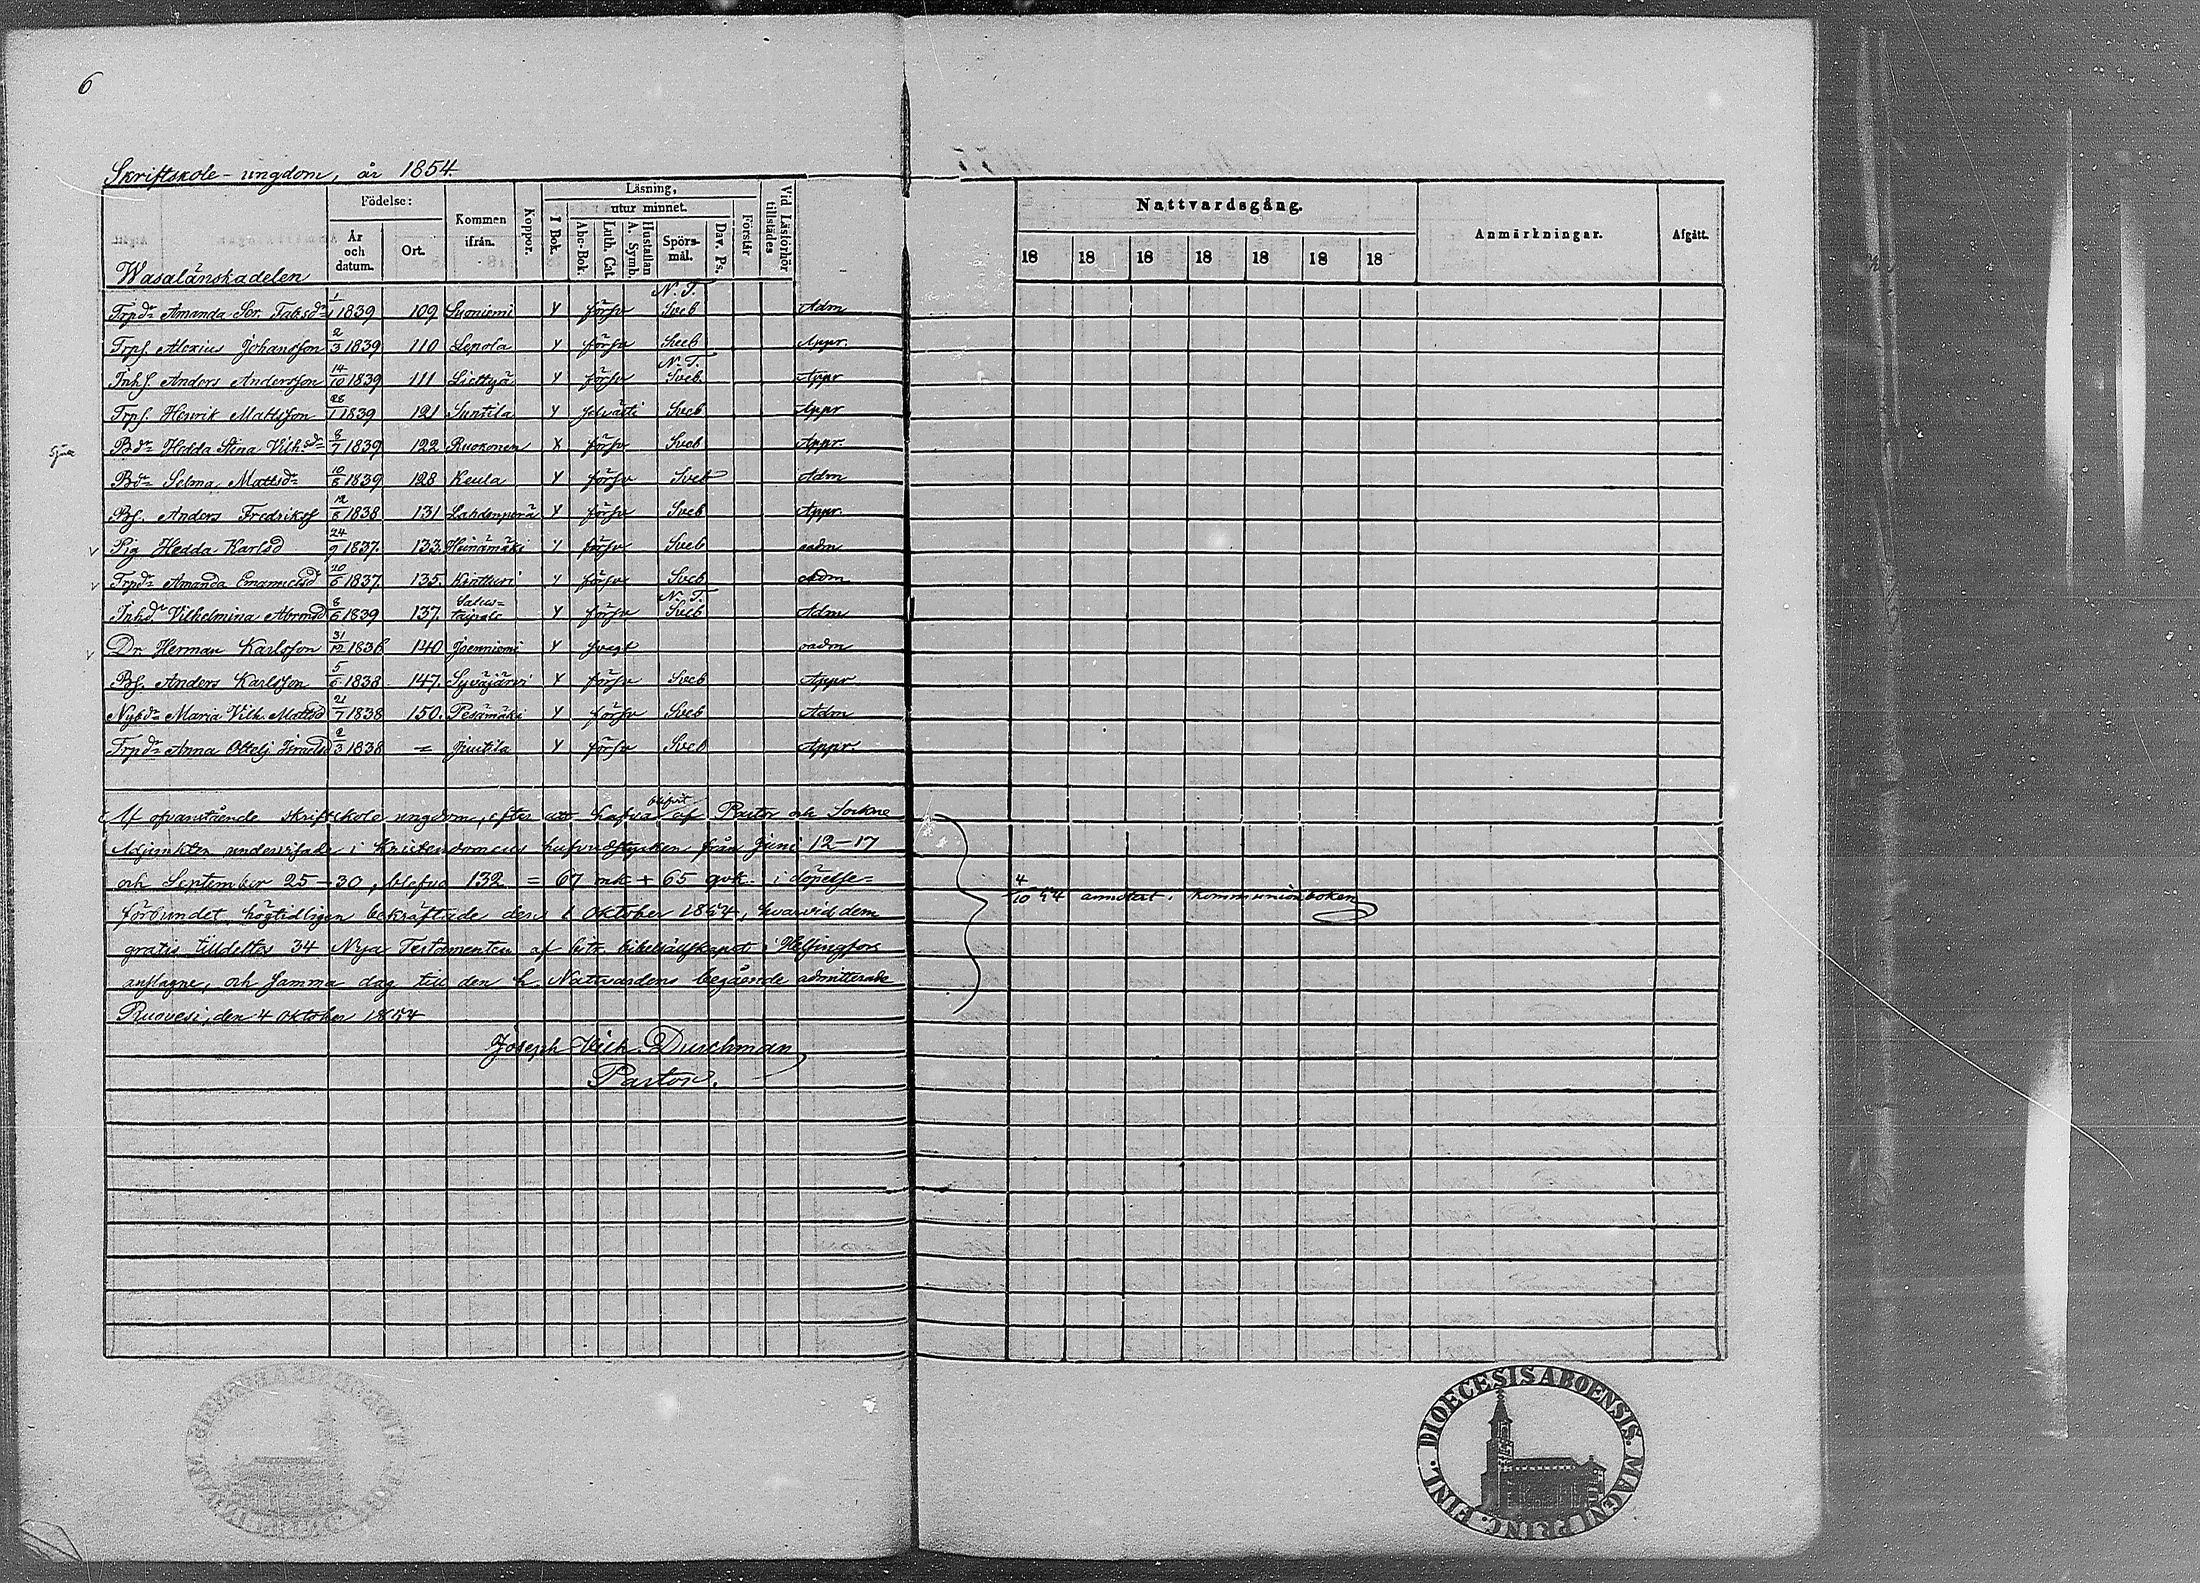 6
Skriftskole-ungdom, år 1854.
Födelse: Kommen ifrån. Koppor. I Bok. Läsning, utur minnet. Abc-Bok. Luth. Cat. Hustaflan A. Symb. Spörsmål. Dav. Ps. Förstår Vid Läsförhör tillstädes
År och datum. Ort.
Wasalänskadelen
Trpdr Amanda Ser. Jaksdr 1/1 1839 109 Suoniemi Y försv N. T. Sveb Adm
Trps. Alexius Johansson 2/3 1839 110 Lepola Y försv Sveb Appr.
Inhs. Anders Andersson 14/10 1839 111 Liettyä Y försv N. T. Sveb. Appr
Trps. Henrik Mattsson 28/1 1839 121 Suntila Y Sveb Appr
Bdr Hedda Stina Vilh.sdr 8/7 1839 122 Ruokonen X försv Sveb Appr.
Bdr Selma Mattsdr 10/8 1839 128 Keula Y försv Sveb Adm
Bs. Anders Fredrikss 12/8 1838 131 Lahdenperä Y försv Sveb Appr.
v Pig Hedda Karlsd 24/9 1837. 133. Heinämäki Y försv Sveb adm
v Trpdr Amanda Emanuelsd 20/6 1837 135. Kertturi Y försv Sveb adm
Inhdr Vilhelmina Abramsd 8/6 1839 137. Y försv N. T. Sveb Adm
v Dr. Herman Karlsson 31/12 1836 140 Joenniemi Y svagt adm
Bs. Anders Karlsson 5/6 1838 147. Syväjärvi Y försv Sveb Appr
Nybdr Maria Vilh. Mattsd 21/7 1838 150. Pesämäki Y försv Sveb Adm
Trpdr Anna Ottelj Israelsd 2/3 1838 = Juutila Y försv Sveb Appr.
Af ofvanstående skriftskole ungdom, efter att hafva blifvit af Pastor och Sockne
Adjunkten undervisade i Kristendomens hufvudstycken från Juni 12–17
och September 25–30, blefvo 132 = 67 mk + 65 qvk. i döpelse=
förbundet högtidligen bekräftade den 1 Oktober 1854, hvarvid dem
gratis tilldeltes 34 Nya Testamenten af bibelsällskapet i Helsingfors
anslagne, och samma dag till den h. Nattvardens begående admitterade
Ruovesi, den 4 Oktober 1854
Joseph Vilh. Durchman
Pastor.
Nattvardsgång. Anmärkningar. Afgått.
18 18 18 18 18 18 18
4/10 54 annoterat i kommunionboken
DIOECESIS ABOENSIS. MAGNI PRINC. FINL.